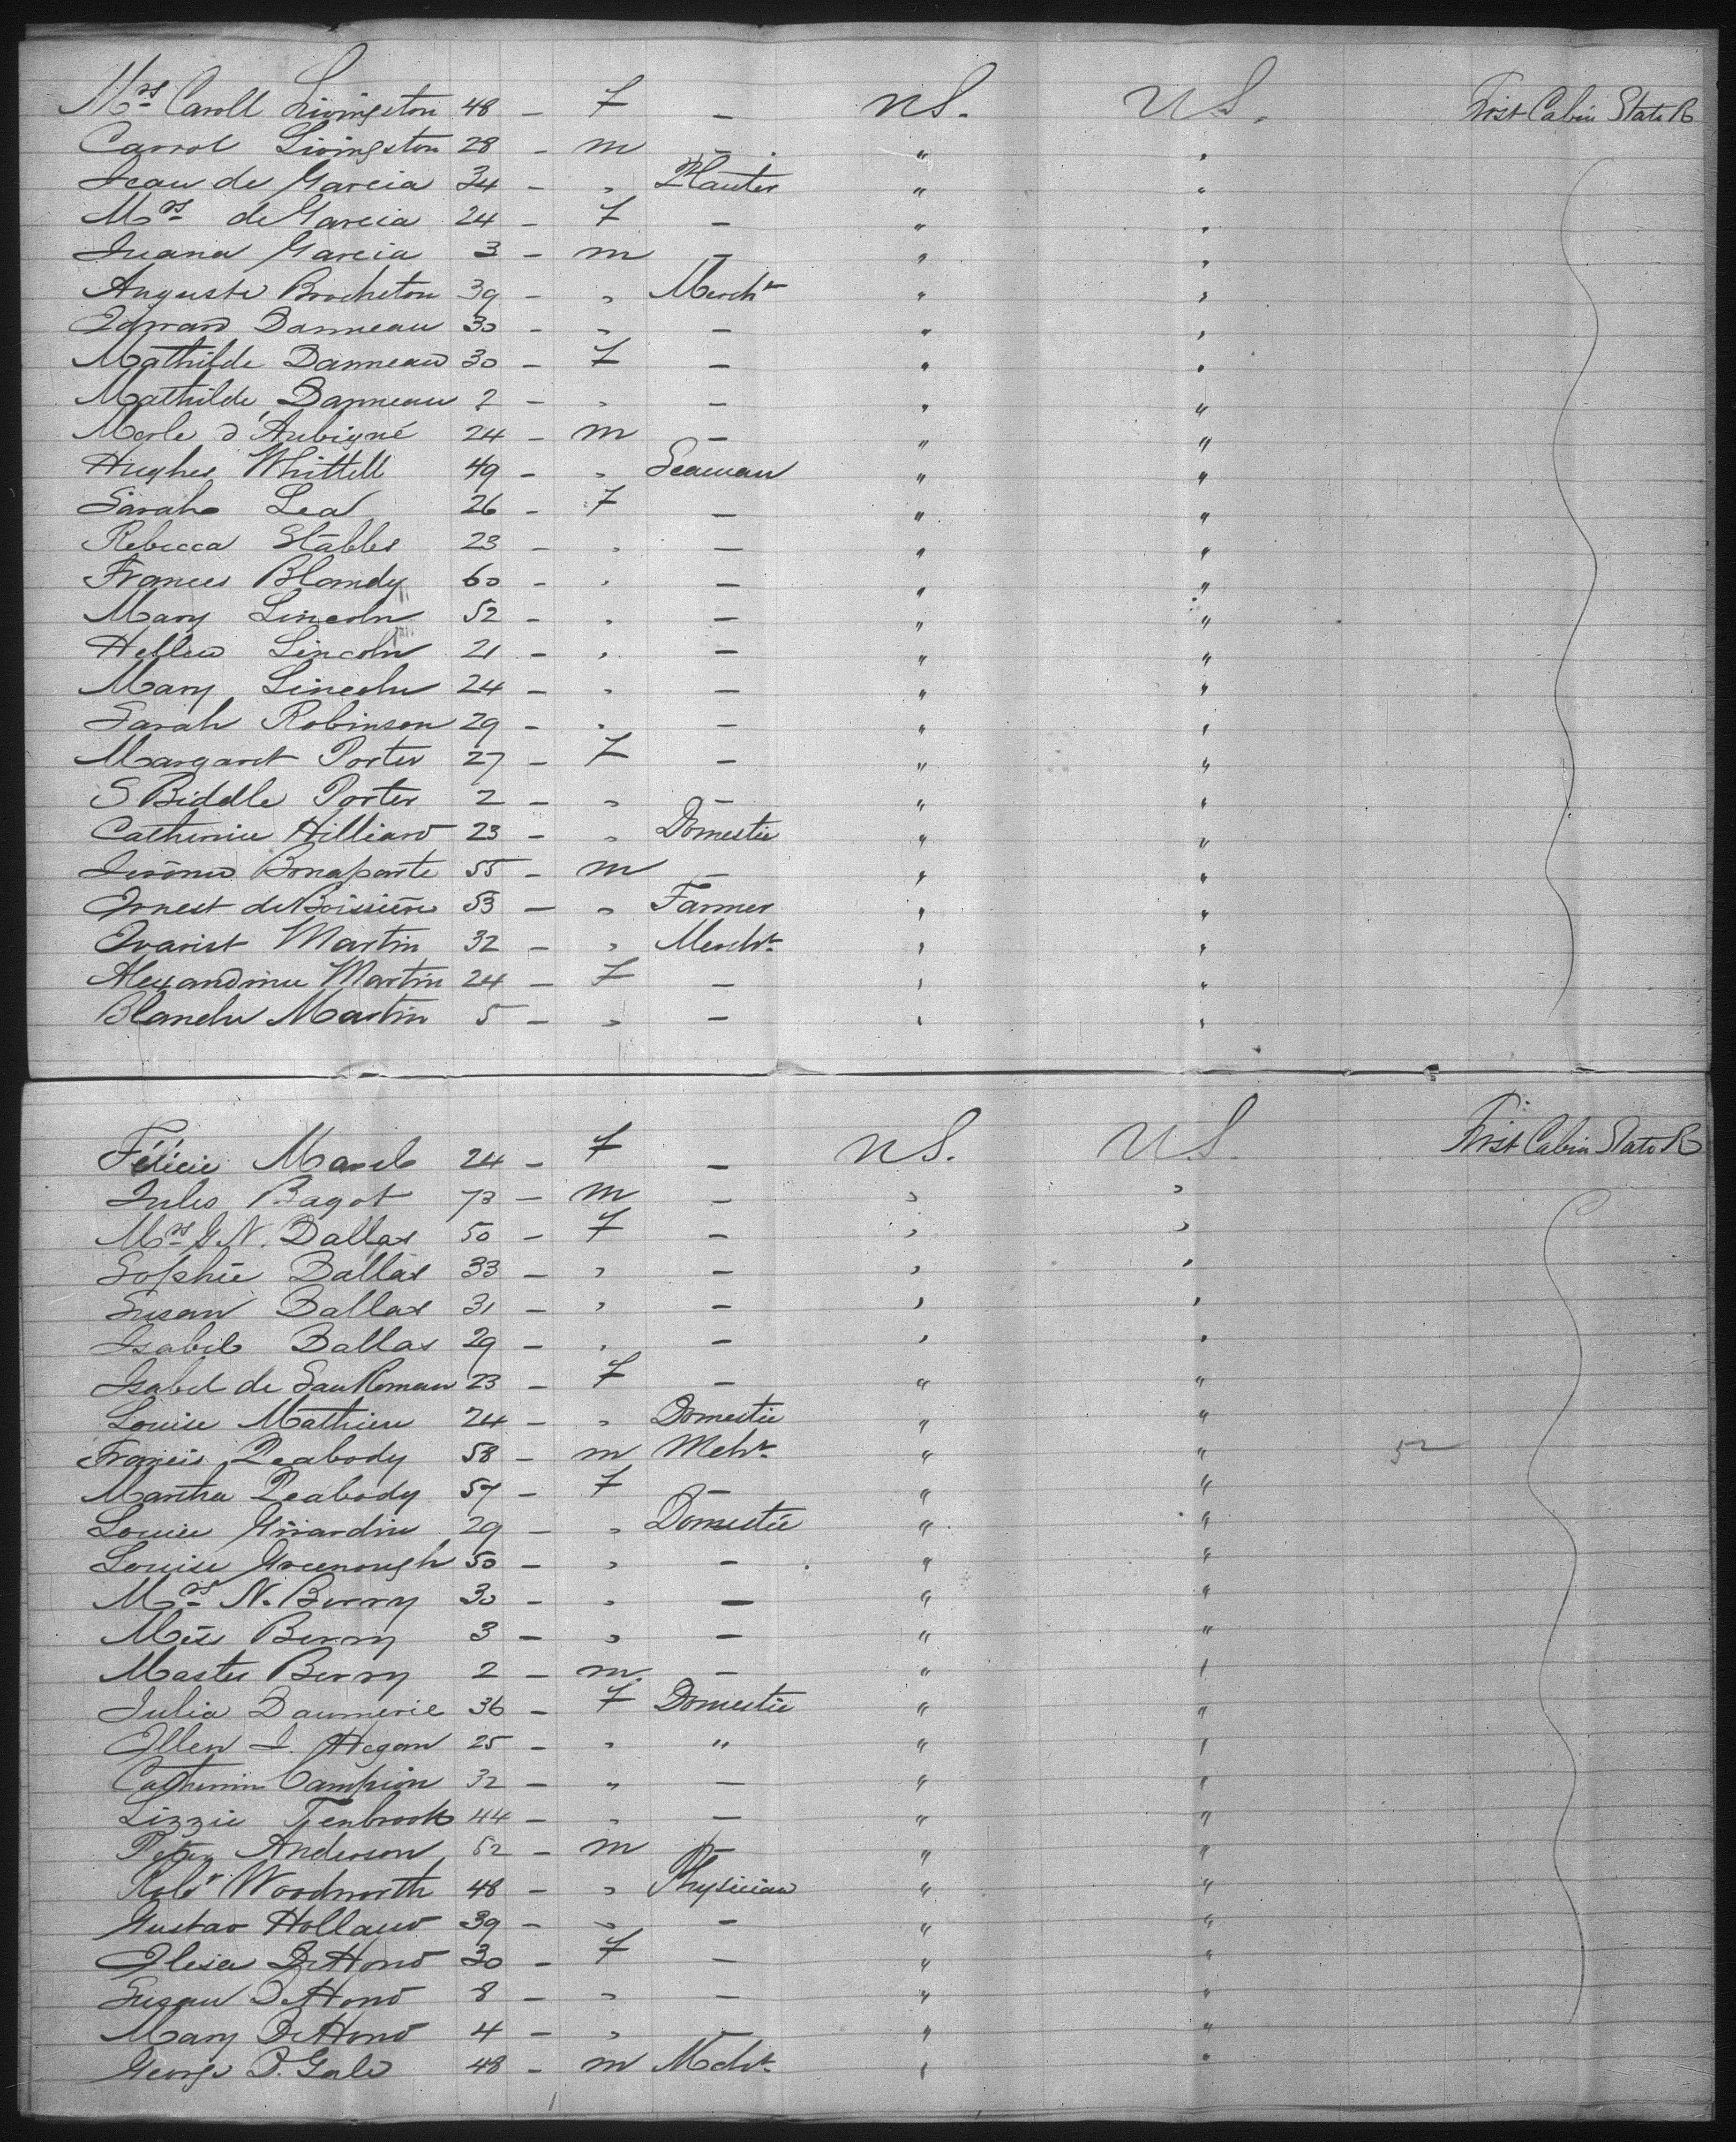 Mrs Caroll Livingston 48 - F - U.S. U.S. First Cabin State R
Carrol Livingston 28 - m - " "
Jean de Garcia 34 - " Planter " "
Mrs de Garcia 24 - F - " "
Juana Garcia 3 - m - " "
Auguste Brocheton 39 - " Mercht " "
Edward Danneau 30 - " - " "
Mathilde Danneau 30 - F - " "
Mathilde Danneau 2 - " - " "
Merle d'Aubigné 24 - m - " "
Hughes Whittell 49 - " Seaman " "
Sarah Lea 26 - F - " "
Rebecca Stables 23 - " - " "
Frances Blandy 60 - " - " "
Mary Lincoln 52 - " - " "
Hellen Lincoln 21 - " - " "
Mary Lincoln 24 - " - " "
Sarah Robinson 29 - " - " "
Margaret Porter 27 - F - " "
S Biddle Porter 2 - " - " "
Catherine Hilliard 23 - " Domestic " "
Jerôme Bonaparte 55 - m - " "
Ernest de Boissière 53 - " Farmer " "
Evarist Martin 32 - " Mercht " "
Alexandrine Martin 24 - F - " "
Blanche Martin 5 - " - " "
Félicie 24 - F - U.S. U.S. First Cabin State R
Jules Bagot 73 - m - " "
Mrs G.N. Dallas 50 - F - " "
Sophie Dallas 33 - " - " "
Susan Dallas 31 - " - " "
Isabel Dallas 29 - " - " "
Isabel de San Roman 23 - F - " "
Louise Mathieu 24 - " Domestic " "
Francis Peabody 58 - m Mcht " " 52
Martha Peabody 57 - F - " "
Louise Girardin 29 - " Domestic " "
Louise Greenough 50 - " - " "
Mrs N. Berry 30 - " - " "
Miss Berry 3 - " - " "
Master Berry 2 - m - " "
Julia Daumerie 36 - F Domestic " "
Ellen J. Hogan 25 - " " " "
Catherine Campion 32 - " - " "
Lizzie Tenbrook 44 - " - " "
Peter Anderson 52 - m - " "
Robt Woodworth 48 - " Physician " "
Gustav Holland 39 - " - " "
Elisa DeHond 30 - F - " "
Susan DeHond 8 - " - " "
Mary DeHond 4 - " - " "
George D. Gale 48 - m Mcht " "